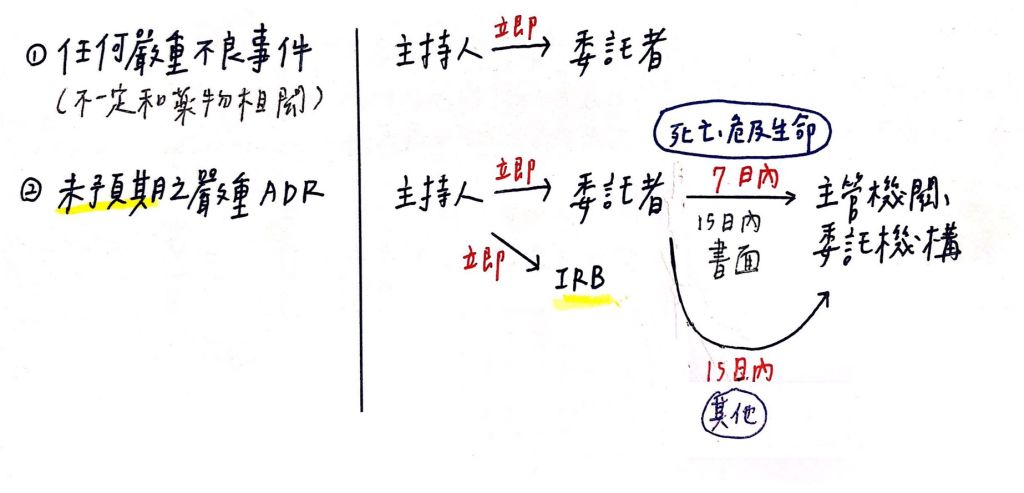 ① 任何嚴重不良事件
(不一定和藥物相關)
主持人 立即 委託者
② 未預期之嚴重ADR
主持人 立即 委託者
立即 IRB
死亡、危及生命
7日內
15日內
書面
主管機關、
委託機構
15日內
其他